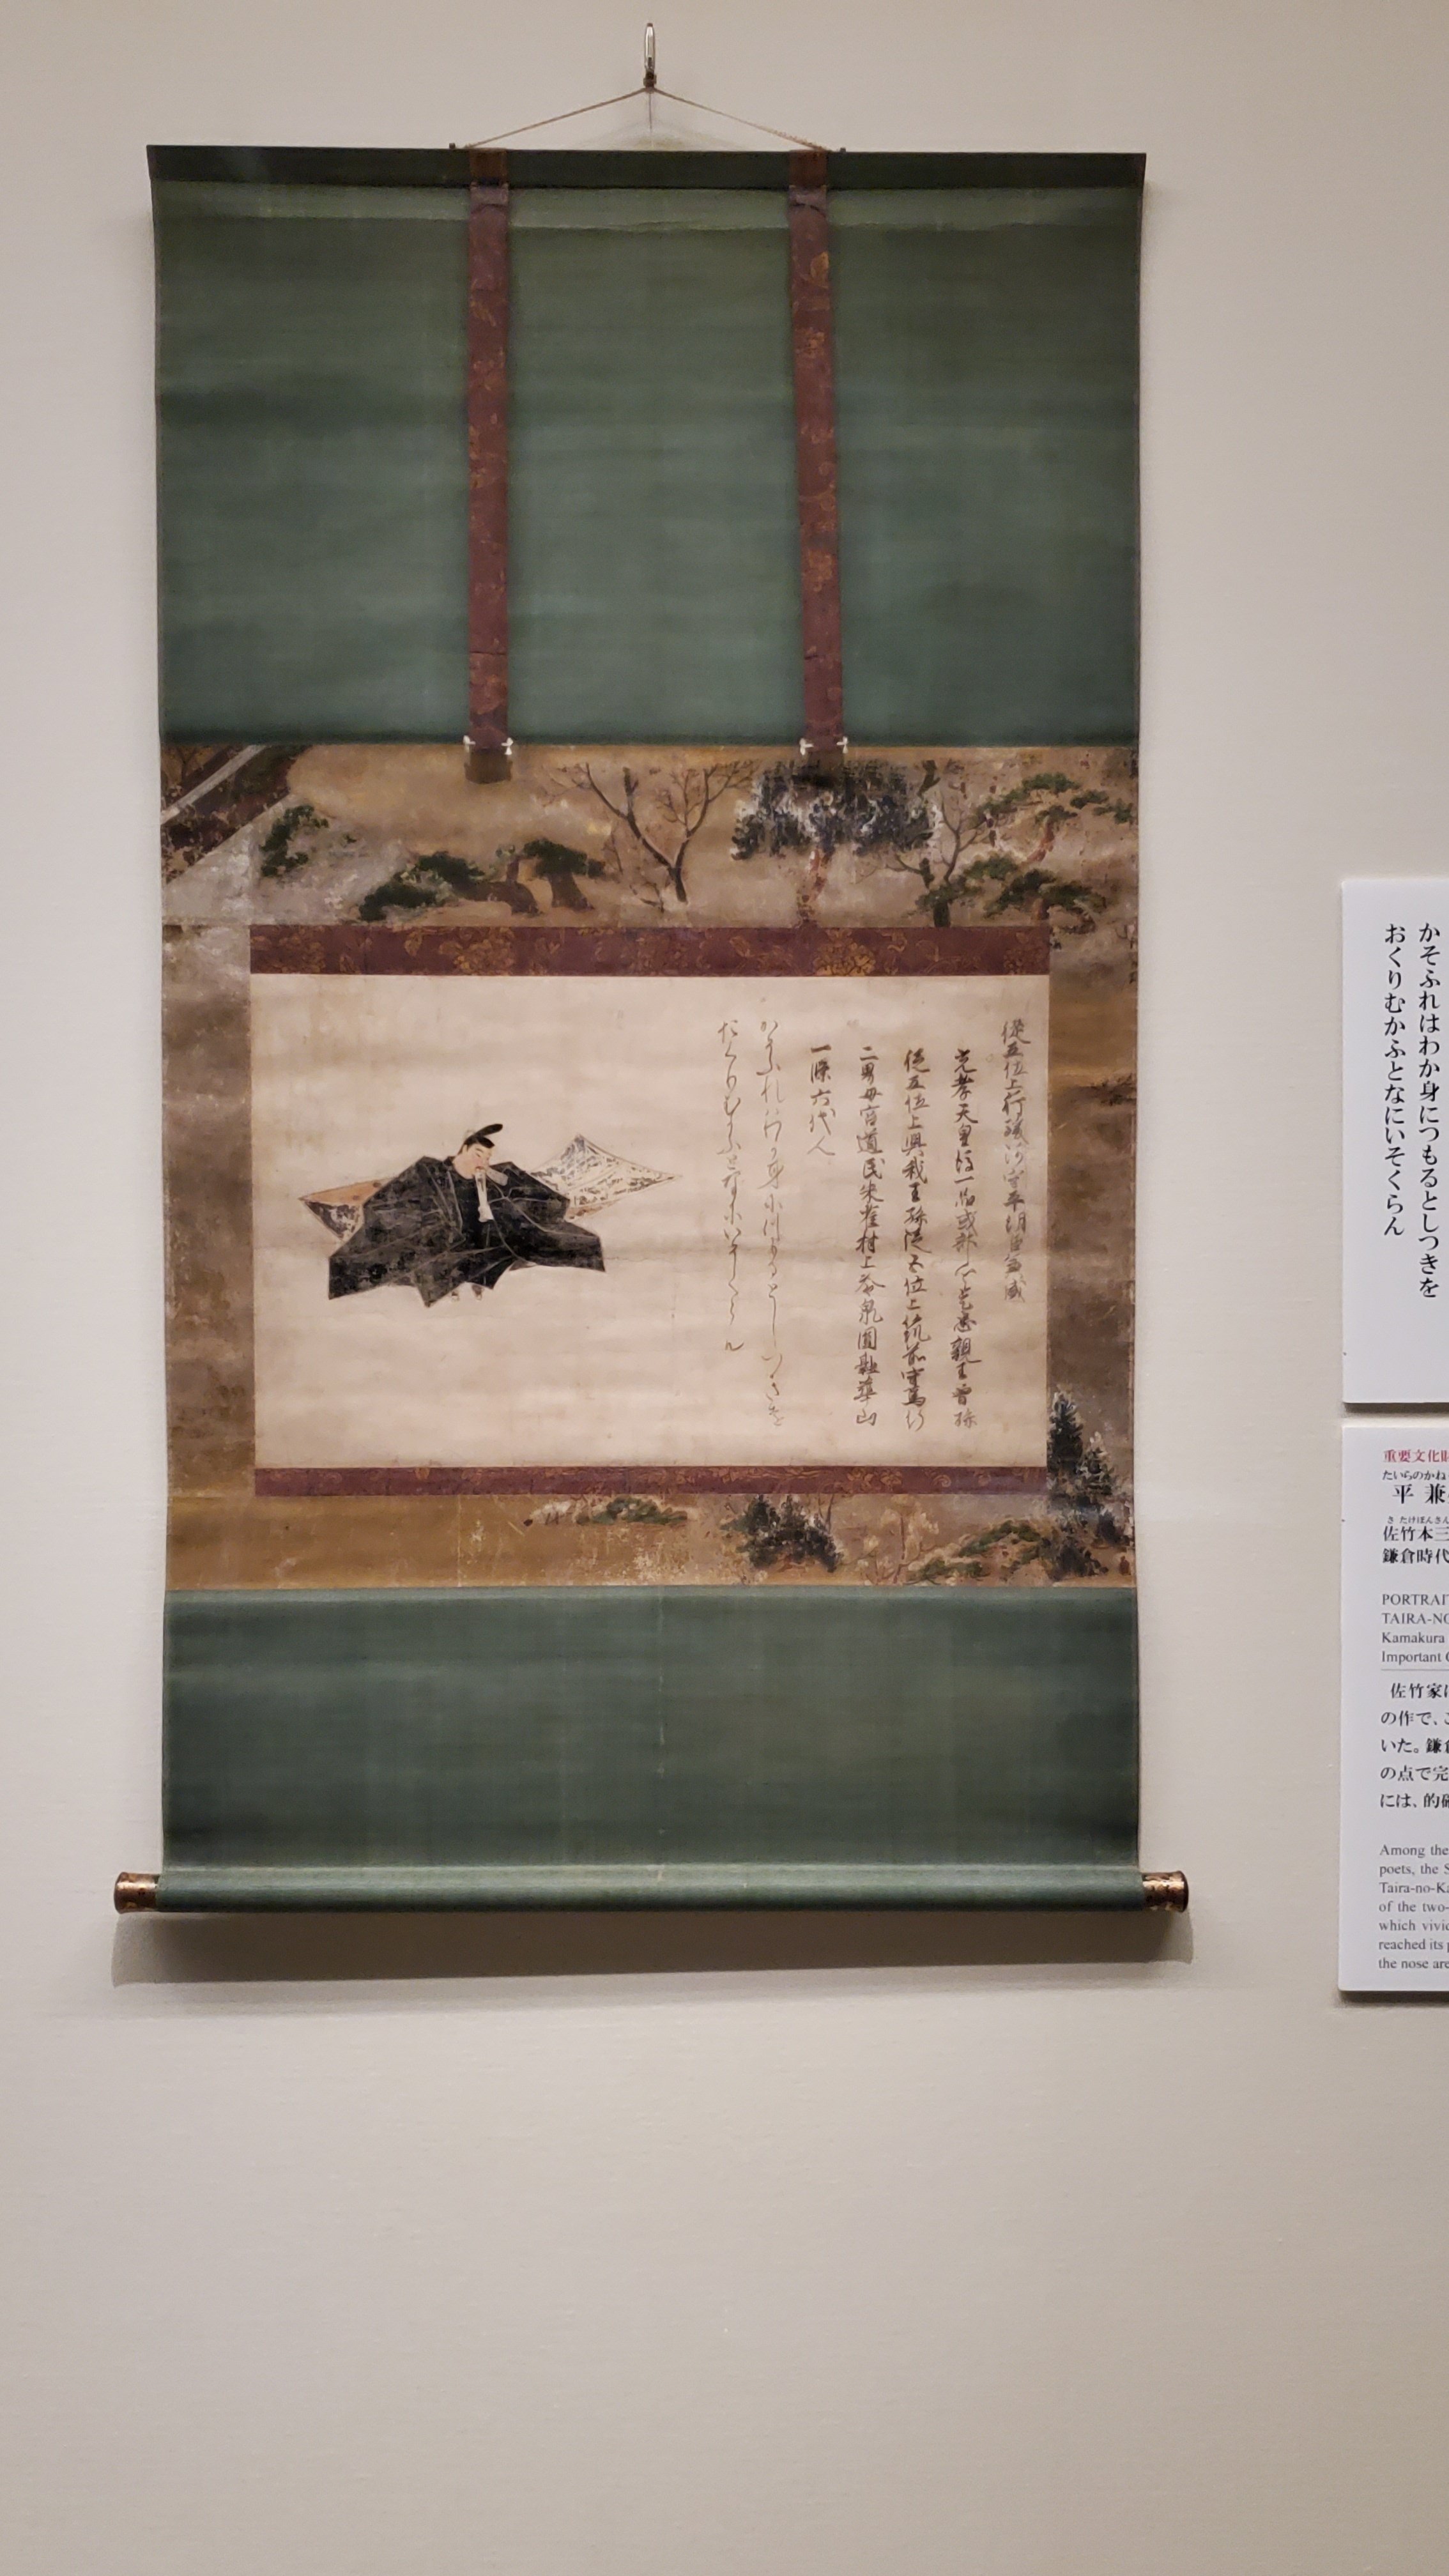 従五位上行駿河守平朝臣兼盛
光孝天皇後一品式部卿是忠親王曽孫
従五位上興我王孫従五位上筑前守篤行
二男母宮道氏朱雀村上冷泉圓融華山
一條六代人
かそふれはわか身につもるとしつきを
おくりむかふとなにいそくらん
かそふれはわか身につもるとしつきを
おくりむかふとなにいそくらん
重要文化財
たいらのかね
平 兼
さ たけぼんさん
佐竹本三
鎌倉時代
PORTRAIT
TAIRA-NO
Kamakura
Important
佐竹家に
の作で、
いた。鎌倉
の点で完
には、的確
Among the
poets, the S
Taira-no-Ka
of the two-
which vivid
reached its
the nose are